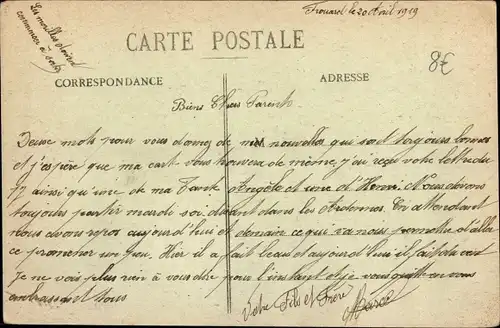 Frouard le 20 Avril 1919
Les morilles doivent
commencer à sortir
8€
CARTE POSTALE
CORRESPONDANCE
ADRESSE
Biens Chers Parents
Deux mots pour vous donner de mes nouvelles qui sont toujours bonnes
et j'espère que ma carte vous trouvera de même, j'ai reçu votre lettre du
17 ainsi qu'une de ma Tante Angèle et une d'Henri. Nous devons
toujours partir mardi soi disant dans les Ardennes. En attendant
nous avons repos aujourd'hui et demain ce qui va nous permettre d'aller
se promener un peu. Hier il a fait beau et aujourd'hui il fait du
Je ne vois plus rien à vous dire pour l'instant et je vous quitte en vous
embrassant tous
Votre Fils et Frère
Marcel